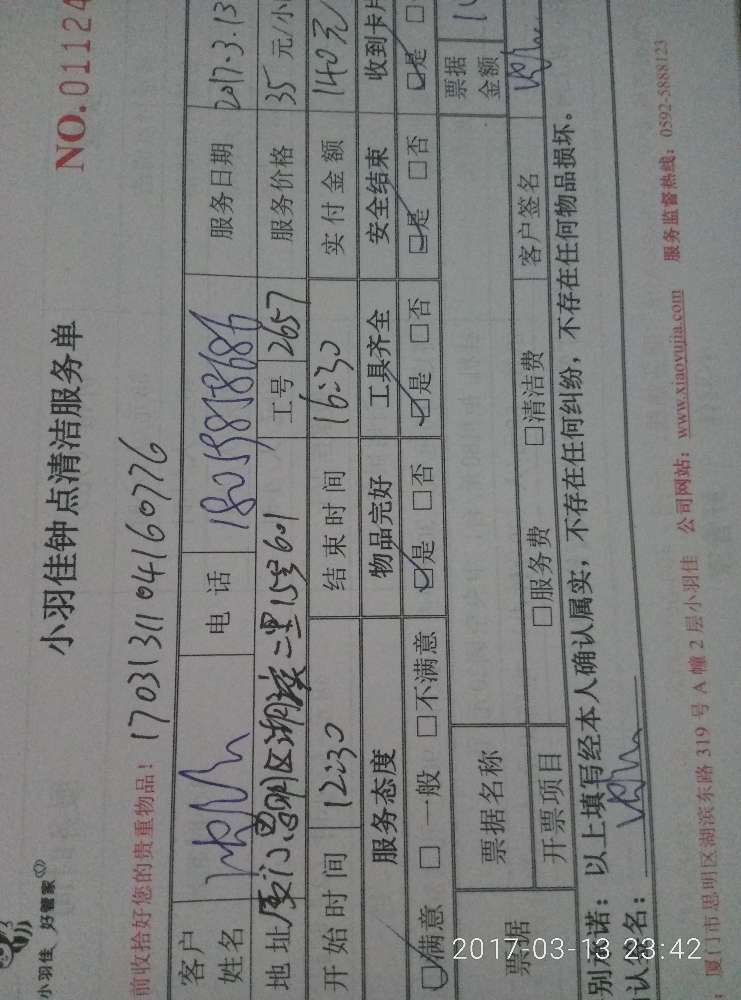 小羽佳 好管家
NO.01124
小羽佳钟点清洁服务单
前收拾好您的贵重物品! 17031311041607​76
客户姓名 电话 18059858686 服务日期 2017.3.13
地址 厦门思明区湖滨二里15号601 工号 2657 服务价格 35 元/小
开始时间 12:30 结束时间 16:30 实付金额 140元
服务态度 物品完好 工具齐全 安全结束 收到卡片
☑满意 □一般 □不满意 ☑是 □否 ☑是 □否 ☑是 □否 ☑是 □
票据 票据名称 票据金额
开票项目 □服务费 □清洁费 客户签名
别承诺:以上填写经本人确认属实,不存在任何纠纷,不存在任何物品损坏。
认签名:
:厦门市思明区湖滨东路 319 号 A 幢 2 层小羽佳 公司网站:www.xiaoyujia.com 服务监督热线:0592-5888123
2017-03-13 23:42